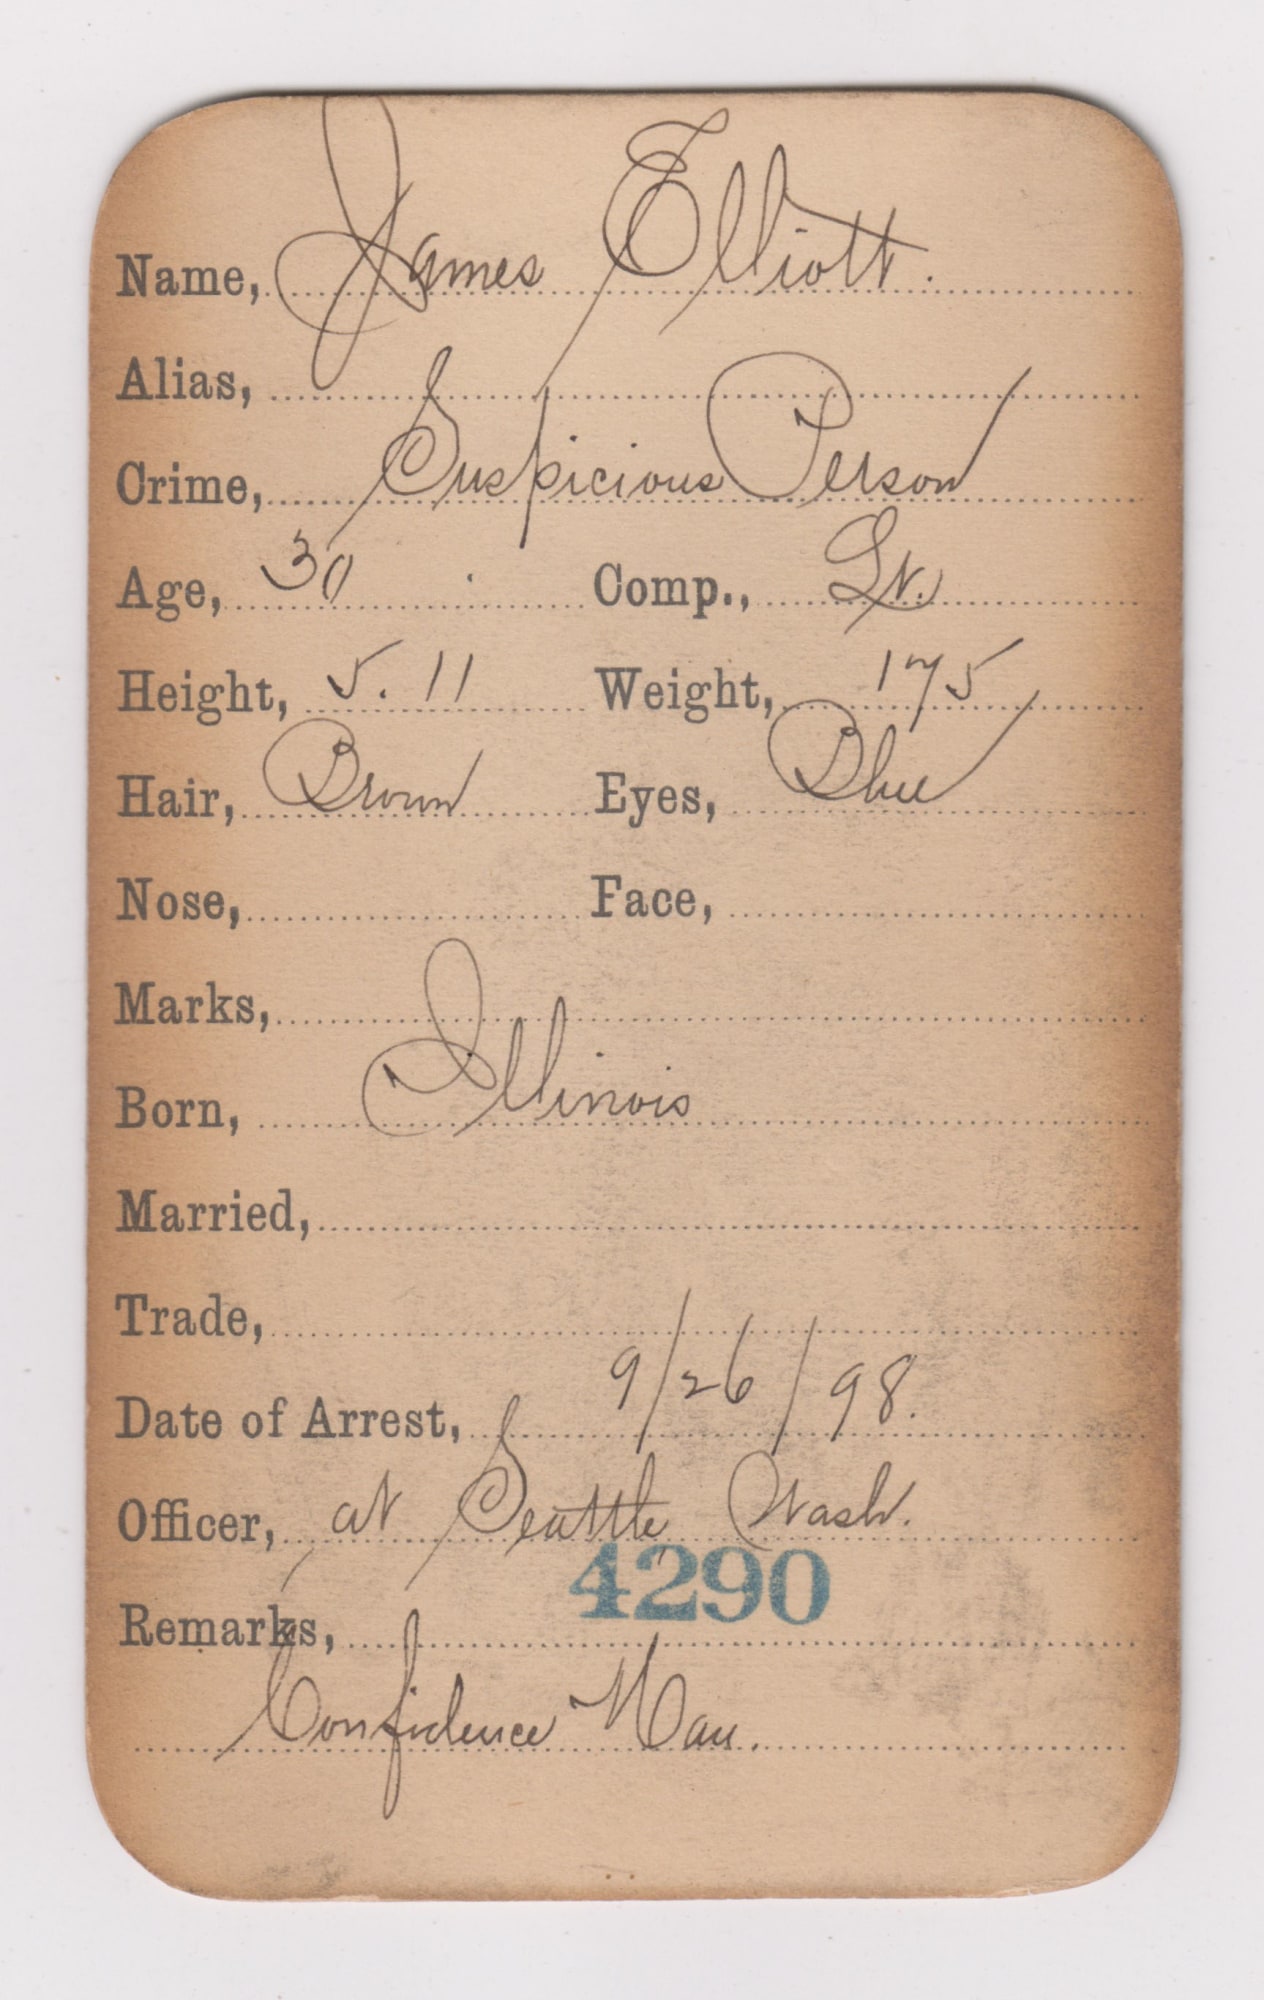 Name, James Elliott.
Alias,
Crime, Suspicious Person
Age, 30 Comp., Lt.
Height, 5.11 Weight, 175
Hair, Brown Eyes, Blue
Nose, Face,
Marks,
Born, Illinois
Married,
Trade,
Date of Arrest, 9/26/98.
Officer, at Seattle, Wash.
4290
Remarks,
Confidence Man.